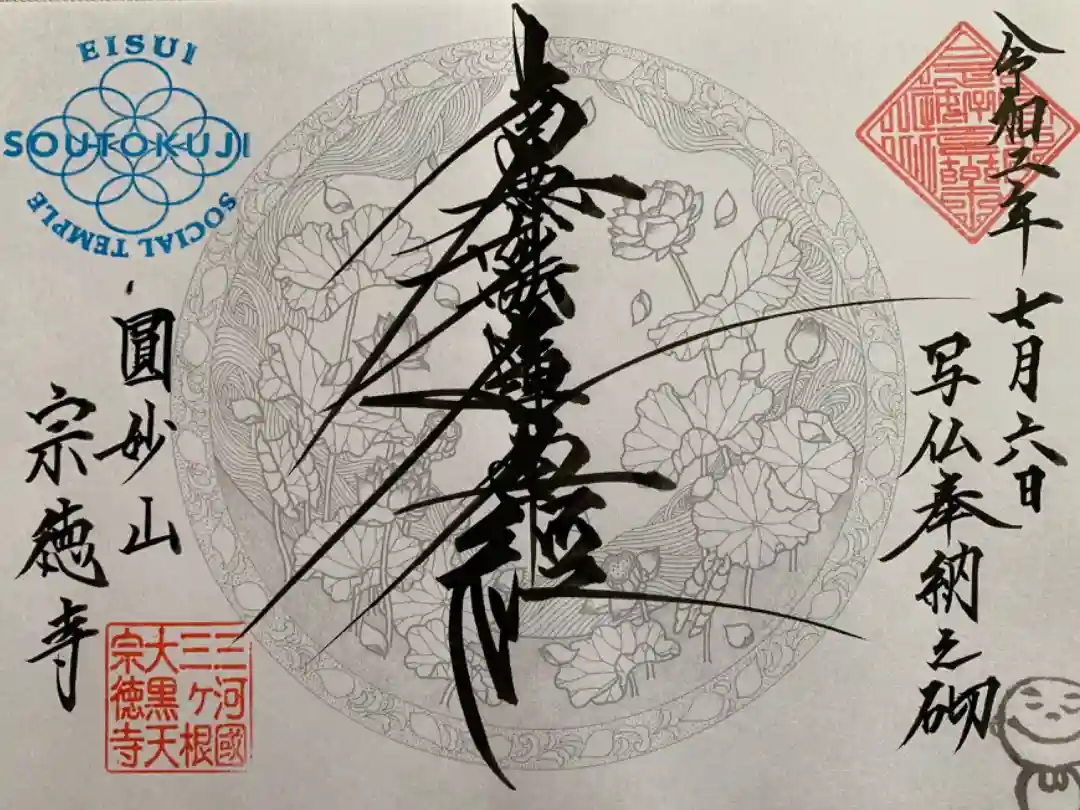 令和二年
七月六日
写仏奉納之砌
南無妙法蓮華経
EISUI
SOUTOKUJI
SOCIAL TEMPLE
圓妙山
宗徳寺
三河國
三ヶ根
大黒天
宗徳寺